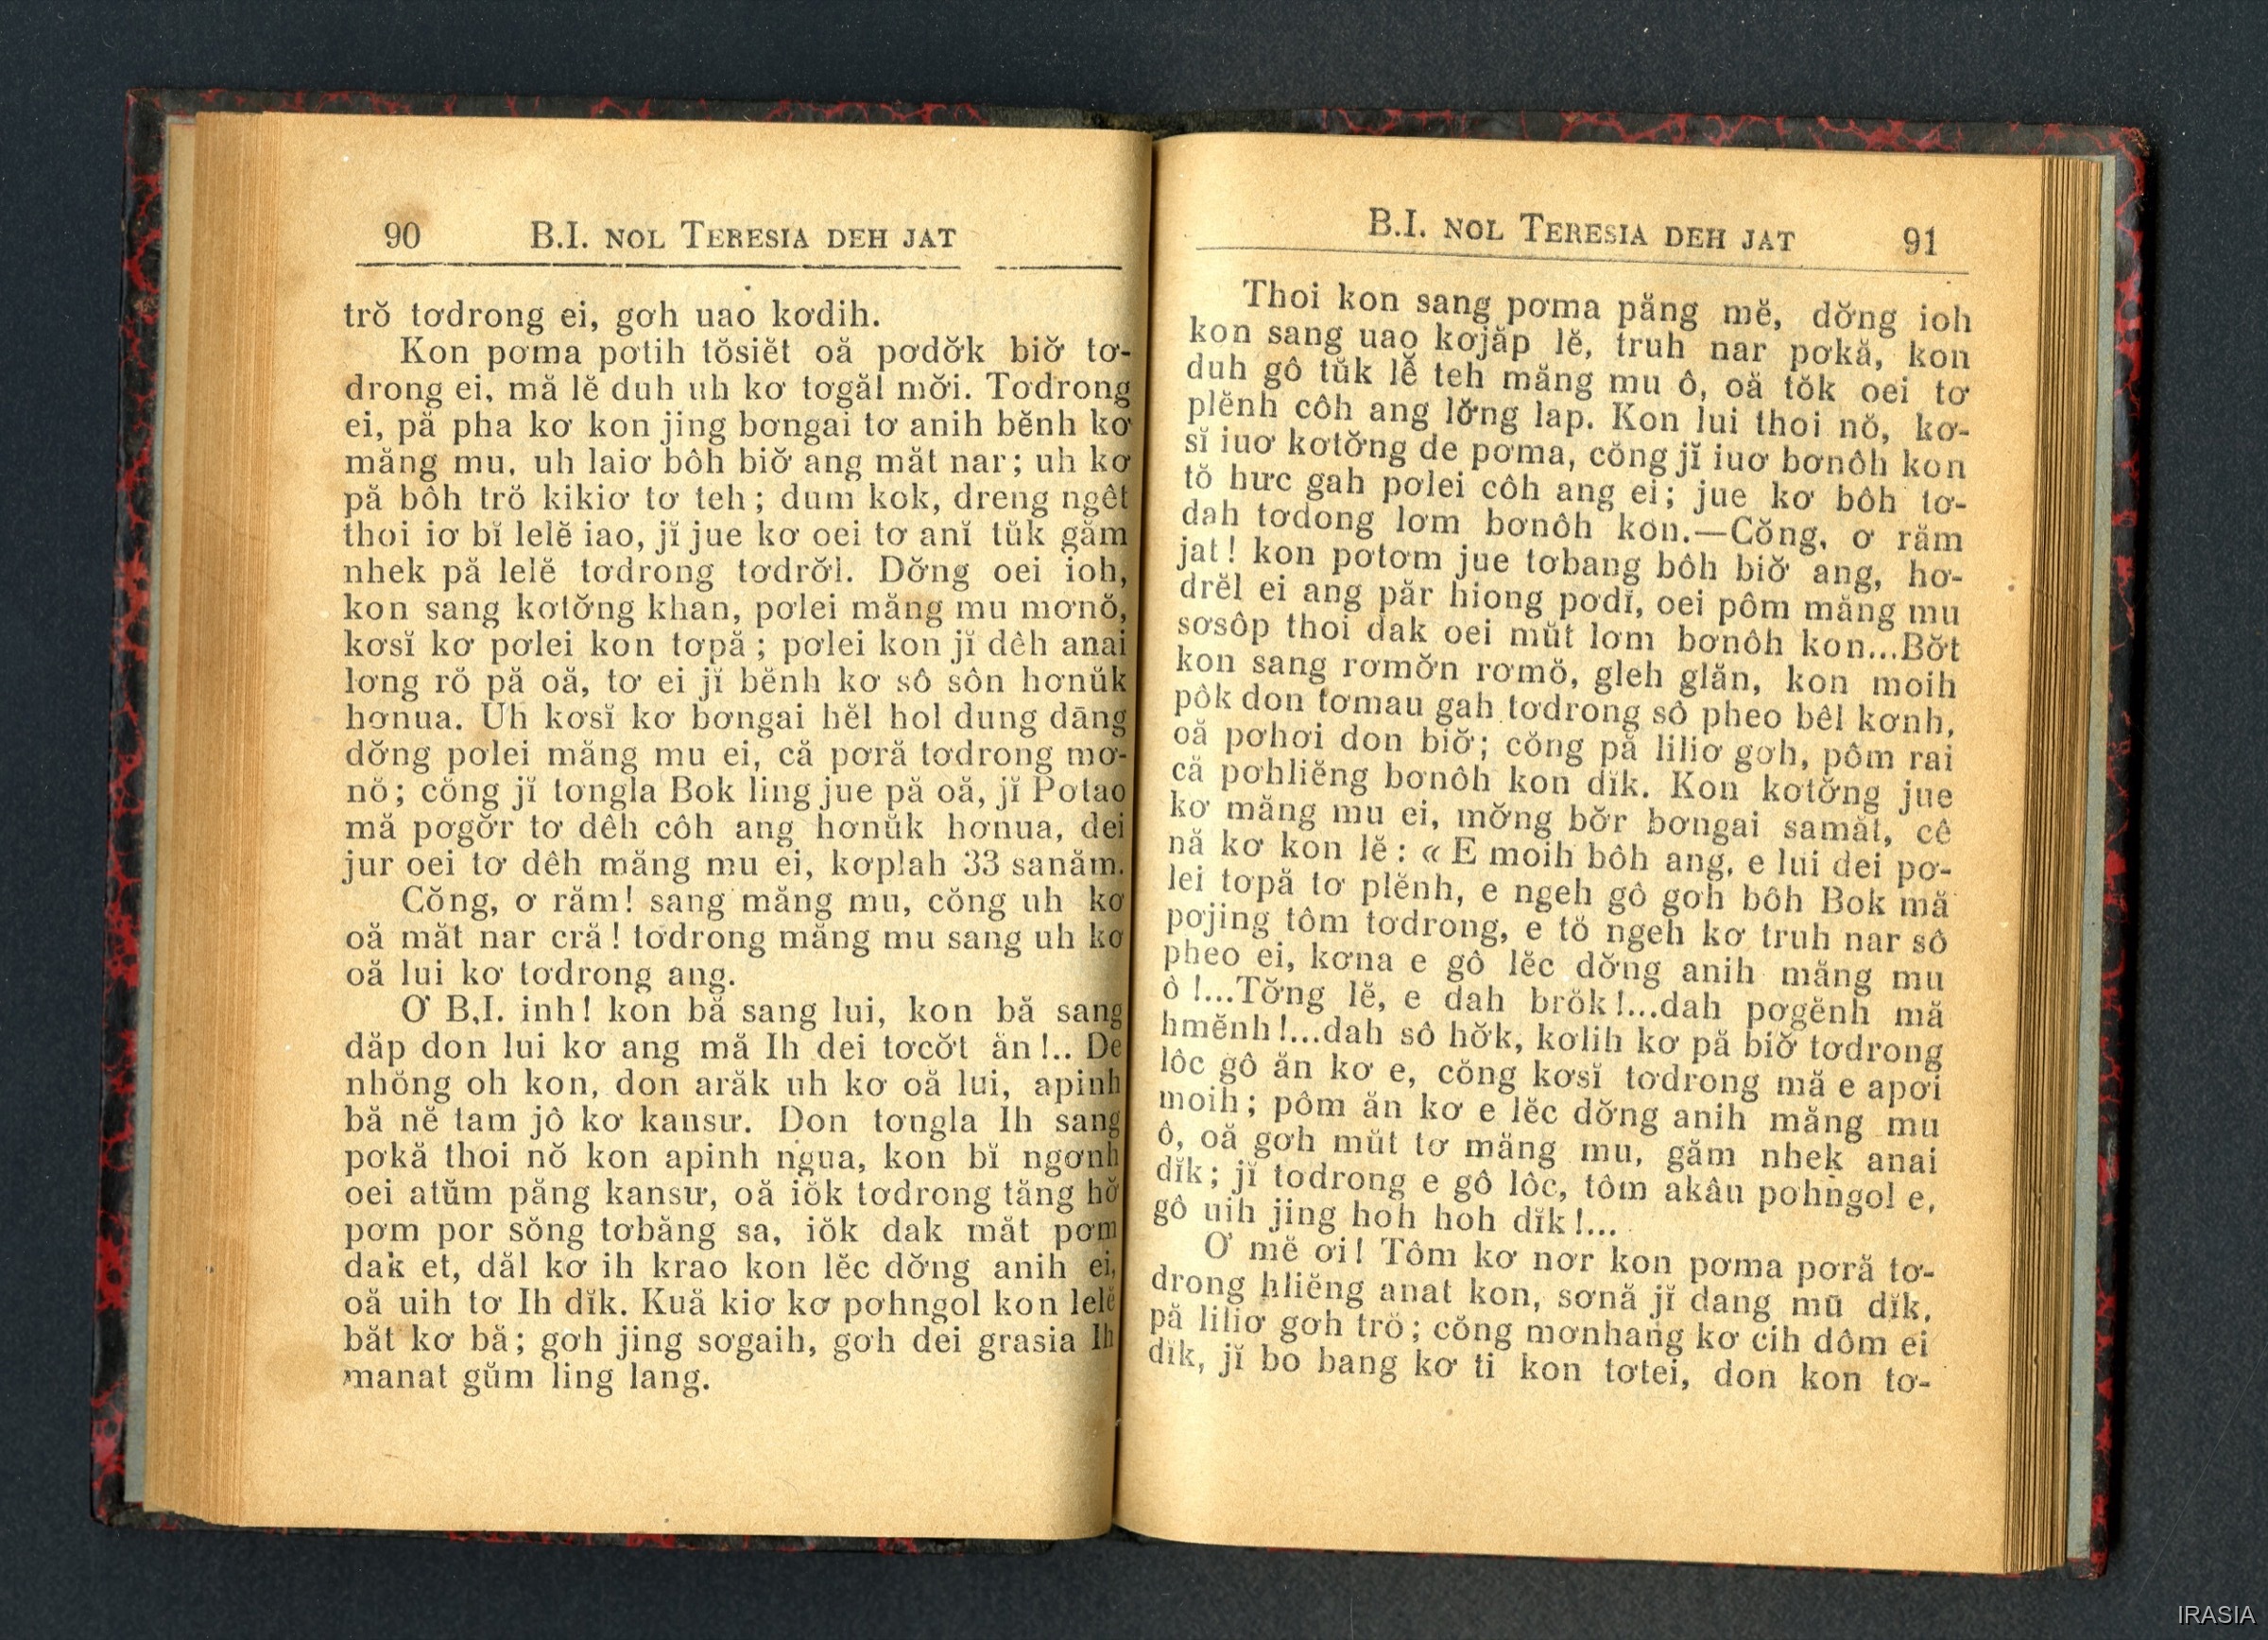 90 B.I. NOL TERESIA DEH JAT
trŏ tơdrong ei, gơh uao kơdih.
Kon pơma pơtih tŏsiĕt oă pơdơ̆k biơ̆ tơ-
drong ei, mă lĕ duh uh kơ tơgăl mơ̆i. Tơdrong
ei, pă pha kơ kon jing bơngai tơ anih bĕnh kơ
măng mu, uh laiơ bôh biơ̆ ang măt nar; uh kơ
pă bôh trŏ kikiơ tơ teh; dum kok, dreng ngêt
thoi iơ bĭ lelĕ iao, jĭ jue kơ oei tơ anĭ tŭk găm
nhek pă lelĕ tơdrong tơdrơ̆l. Dơ̆ng oei ioh,
kon sang kơtơ̆ng khan, pơlei măng mu mơnŏ,
kơsĭ kơ pơlei kon tơpă; pơlei kon jĭ dêh anai
lơng rŏ pă oă, tơ ei jĭ bĕnh kơ sô sôn hơnŭk
hơnua. Uh kơsĭ kơ bơngai hĕl hol dung dăng
dơ̆ng pơlei măng mu ei, că pơră tơdrong mơ-
nŏ; cŏng jĭ tơngla Bok ling jue pă oă, jĭ Pơtao
mă pơgơ̆r tơ dêh côh ang hơnŭk hơnua, dei
jur oei tơ dêh măng mu ei, kơplah 33 sanăm.
Cŏng, ơ răm! sang măng mu, cŏng uh kơ
oă măt nar cră! tơdrong măng mu sang uh kơ
oă lui kơ tơdrong ang.
Ơ B.I. inh! kon bă sang lui, kon bă sang
dăp don lui kơ ang mă Ih dei tơcơ̆t ăn!.. De
nhŏng oh kon, don arăk uh kơ oă lui, apinh
bă nĕ tam jô kơ kansư. Don tơngla Ih sang
pơkă thoi nŏ kon apinh ngua, kon bĭ ngơnh
oei atŭm păng kansư, oă iŏk tơdrong tăng hơ̆
pơm por sŏng tơbăng sa, iŏk dak măt pơm
dak et, dăl kơ ih krao kon lĕc dơ̆ng anih ei,
oă uih tơ Ih dĭk. Kuă kiơ kơ pơhngol kon lelĕ
băt kơ bă; gơh jing sơgaih, gơh dei grasia Ih
manat gŭm ling lang.
B.I. NOL TERESIA DEH JAT 91
Thoi kon sang pơma păng mĕ, dơ̆ng ioh
kon sang uao kơjăp lĕ, truh nar pơkă, kon
duh gô tŭk lĕ teh măng mu ô, oă tŏk oei tơ
plĕnh côh ang lơ̆ng lap. Kon lui thoi nŏ, kơ-
sĭ iuơ kơtơ̆ng de pơma, cŏng jĭ iuơ bơnôh kon
tŏ hưc gah pơlei côh ang ei; jue kơ bôh tơ-
dah tơdong lơm bơnôh kon.—Cŏng, ơ răm
jat! kon pơtơm jue tơbang bôh biơ̆ ang, hơ-
drĕl ei ang păr hiong pơdĭ, oei pôm măng mu
sơsôp thoi dak oei mŭt lơm bơnôh kon...Bơ̆t
kon sang rơmơ̆n rơmŏ, gleh glăn, kon moih
pôk don tơmau gah tơdrong sô pheo bêl kơnh,
oă pơhơi don biơ̆; cŏng pă liliơ gơh, pôm rai
că pơhliĕng bơnôh kon dĭk. Kon kơtơ̆ng jue
kơ măng mu ei, mơ̆ng bơ̆r bơngai samăt, cê
nă kơ kon lĕ: «E moih bôh ang, e lui dei pơ-
lei tơpă tơ plĕnh, e ngeh gô gơh bôh Bok mă
pơjing tôm tơdrong, e tŏ ngeh kơ truh nar sô
pheo ei, kơna e gô lĕc dơ̆ng anih măng mu
ô!...Tơ̆ng lĕ, e dah brŏk!...dah pơgĕnh mă
hmĕnh!...dah sô hơ̆k, kơlih kơ pă biơ̆ tơdrong
lôc gô ăn kơ e, cŏng kơsĭ tơdrong mă e apơi
moih; pôm ăn kơ e lĕc dơ̆ng anih măng mu
ô, oă gơh mŭt tơ măng mu, găm nhek anai
dĭk; jĭ todrong e gô lôc, tôm akâu pơhngol e,
gô uih jing hoh hoh dĭk!...
Ơ mĕ ơi! Tôm kơ nơr kon pơma pơră tơ-
drong hliĕng anat kon, sơnă jĭ dang mŭ dĭk,
pă liliơ gơh trŏ; cŏng mơnhang kơ cih dôm ei
dĭk, jĭ bo bang kơ ti kon tơtei, don kon tơ-
IRASIA